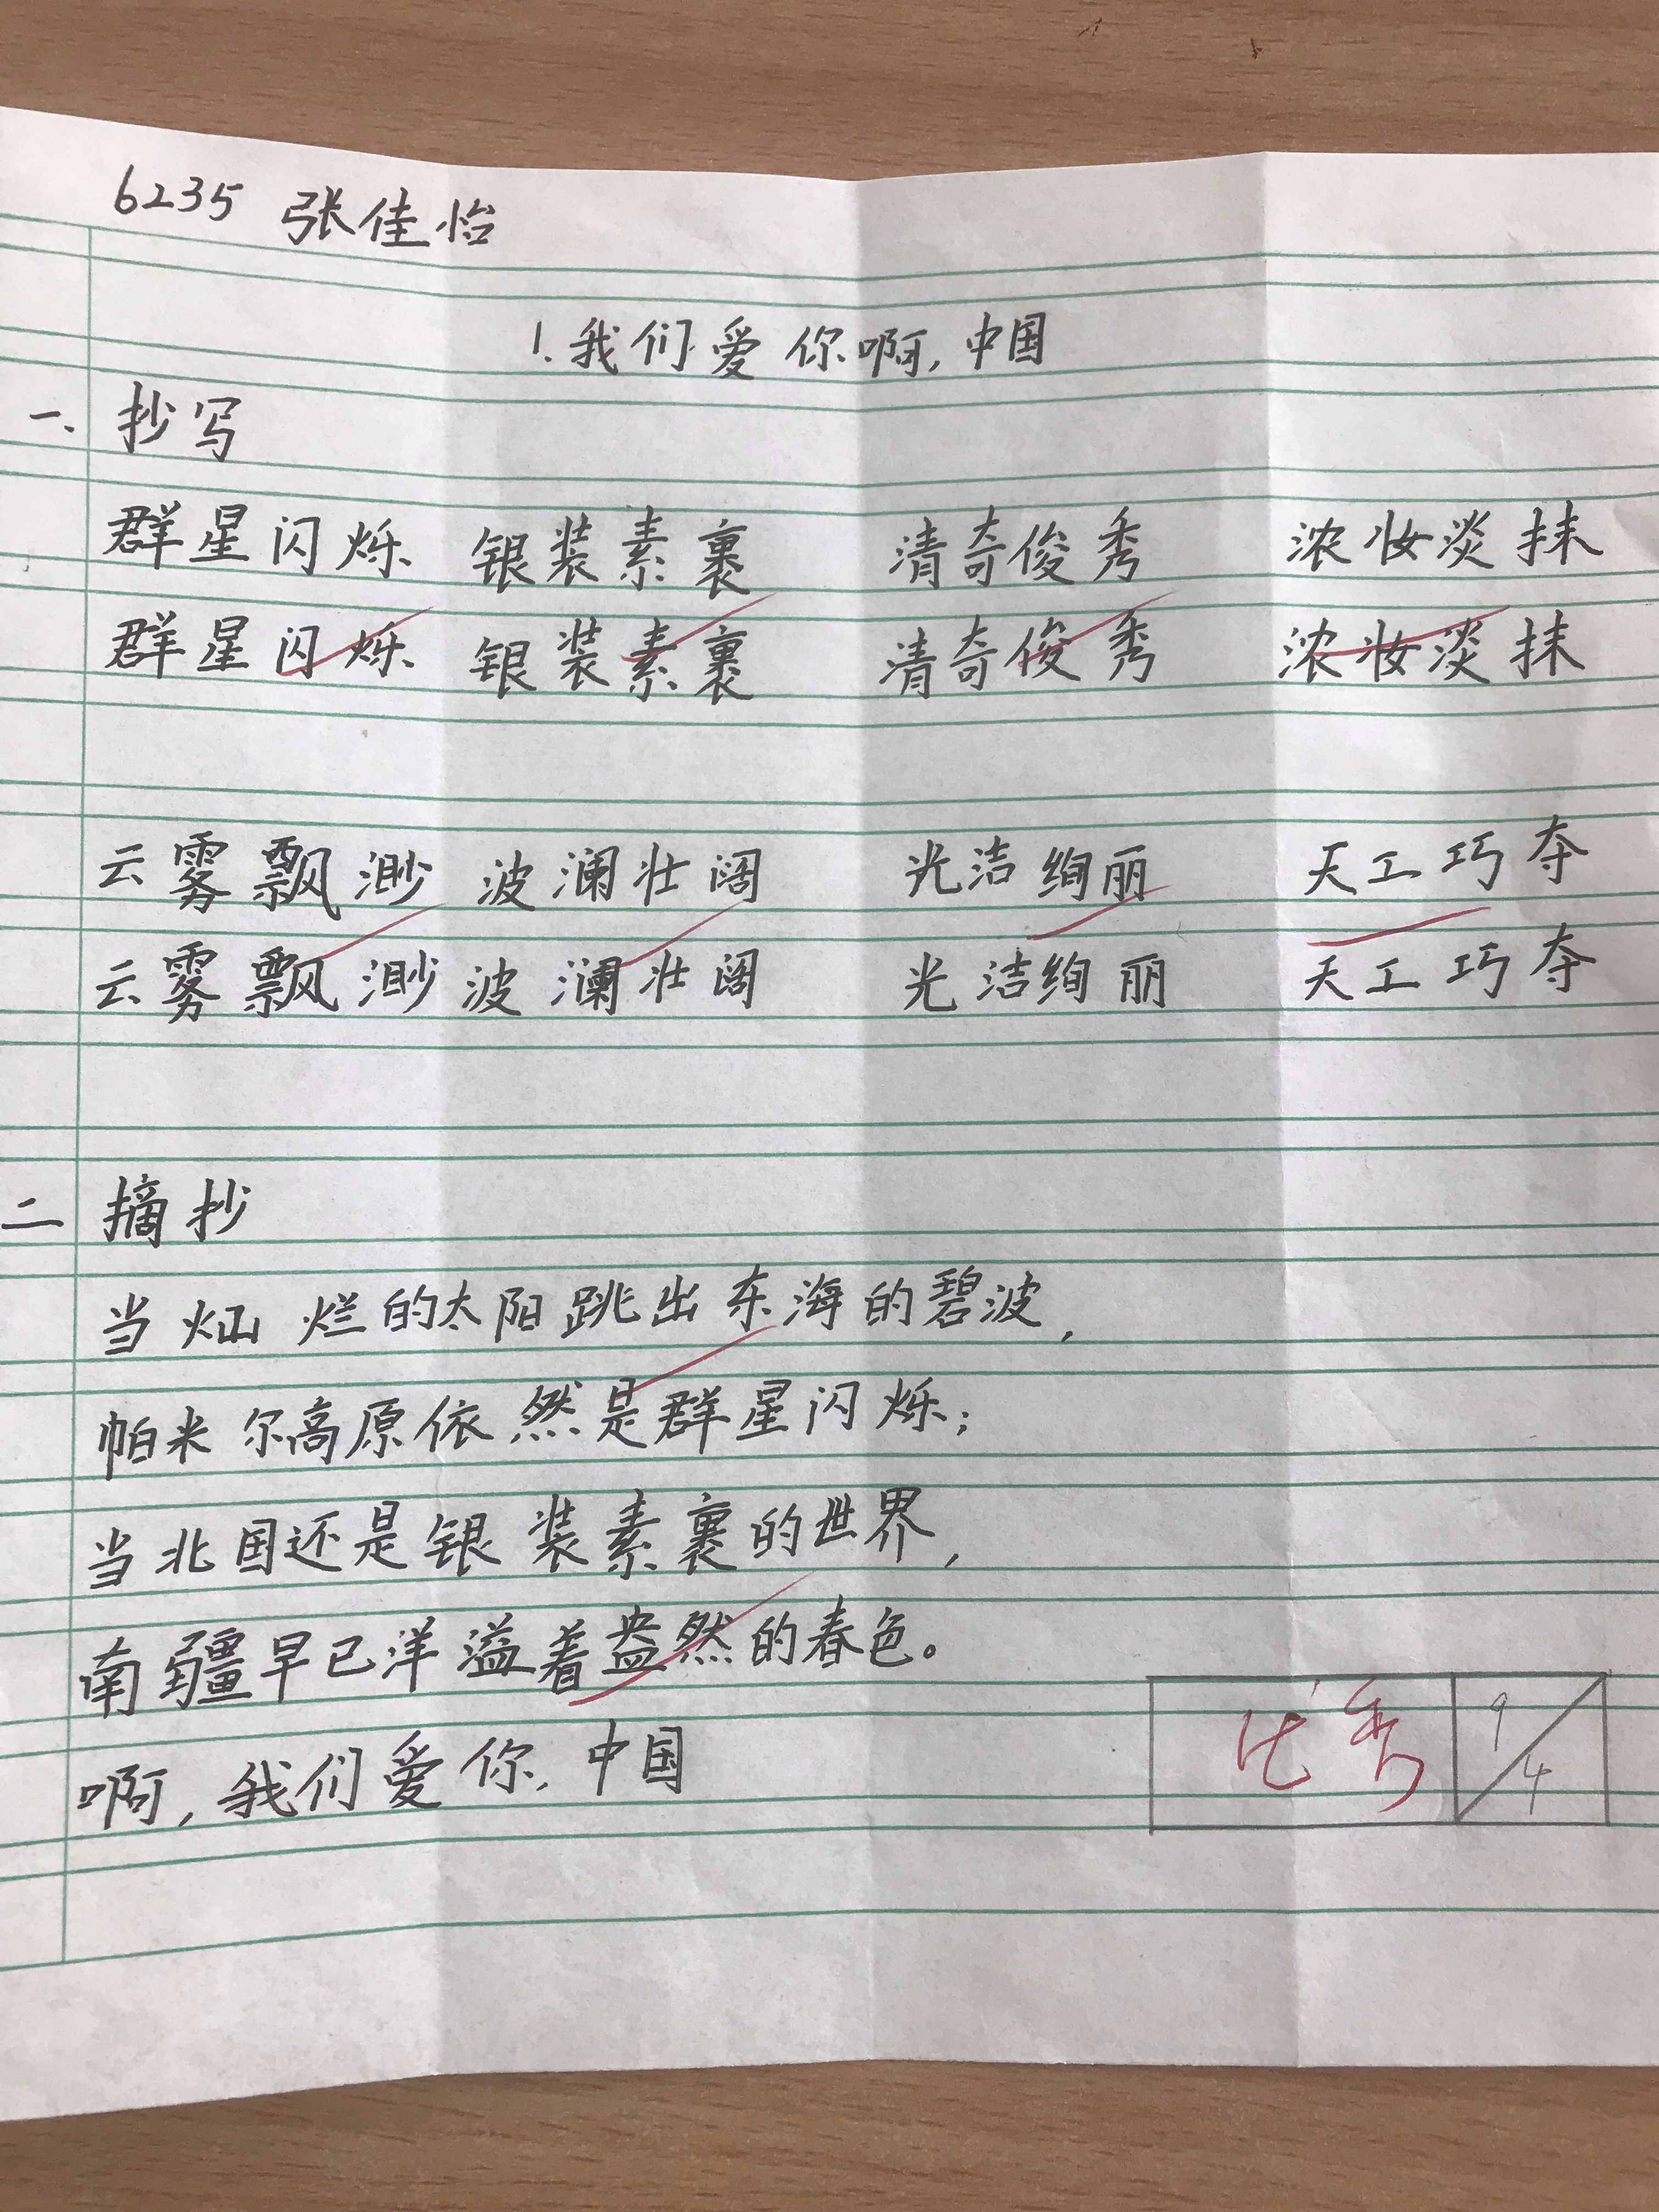 6235 张佳怡
1.我们爱你啊,中国
一、抄写
群星闪烁 银装素裹 清奇俊秀 浓妆淡抹
群星闪烁 银装素裹 清奇俊秀 浓妆淡抹
云雾飘渺 波澜壮阔 光洁绚丽 天工巧夺
云雾飘渺 波澜壮阔 光洁绚丽 天工巧夺
二 摘抄
当灿烂的太阳跳出东海的碧波,
帕米尔高原依然是群星闪烁;
当北国还是银装素裹的世界,
南疆早已洋溢着盎然的春色。
啊,我们爱你,中国
优秀 9/4